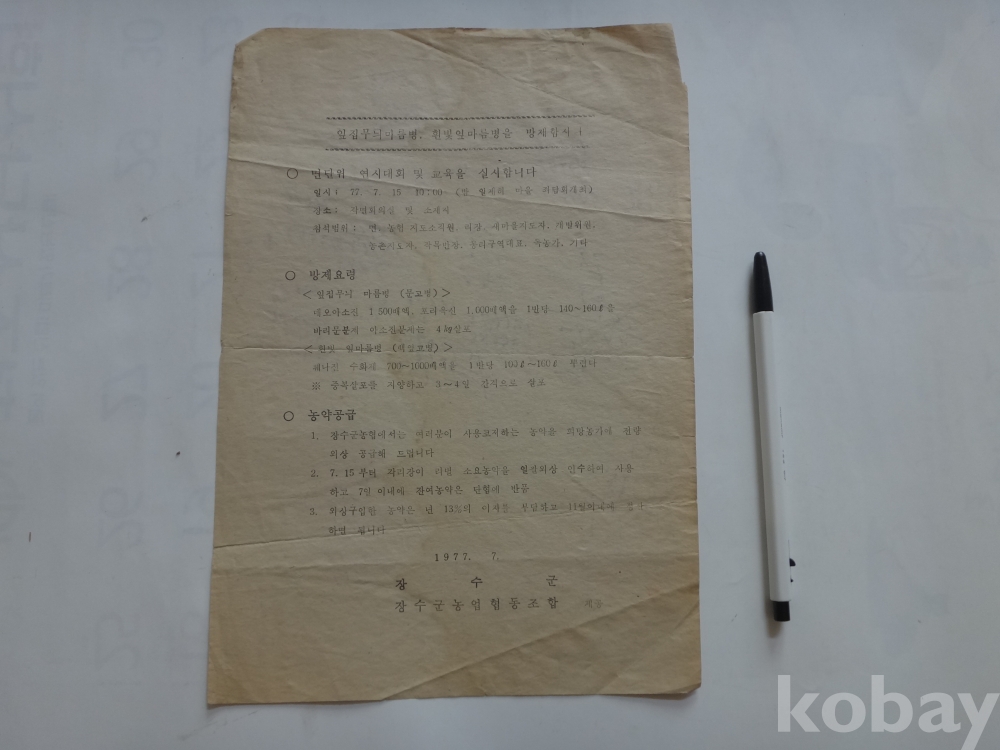 잎집무늬마름병, 흰빛잎마름병을 방제합시다
○ 면단위 연시대회 및 교육을 실시합니다
일시: 77. 7. 15 10:00
장소:
참석범위: 면, 농협 지도소직원, 이장, 새마을지도자, 개발위원,
농촌지도자, 작목반장, 독농가, 기타
○ 방제요령
<잎집무늬 마름병 (문고병)>
네오아소진 1,500배액, 포리옥신 1,000배액을 1반당 140~160ℓ을
4㎏살포
<흰빛 잎마름병 (백엽고병)>
페나진 수화제 700~1000배액을 1반당 100ℓ~160ℓ
※ 중복살포를 지양하고 3~4일 간격으로 살포
○ 농약공급
1. 장수군농협에서는 여러분이 사용코자하는 농약을 희망농가에 전량
외상 공급해 드립니다
2. 7.15부터 소요농약을 일괄외상 인수하여 사용
하고 7일 이내에 잔여농약은 단협에 반품
3. 외상구입한 농약은 년 13%의 이자를 부담하고
하면 됩니다
1977. 7.
장수군
장수군농업협동조합 제공
kobay